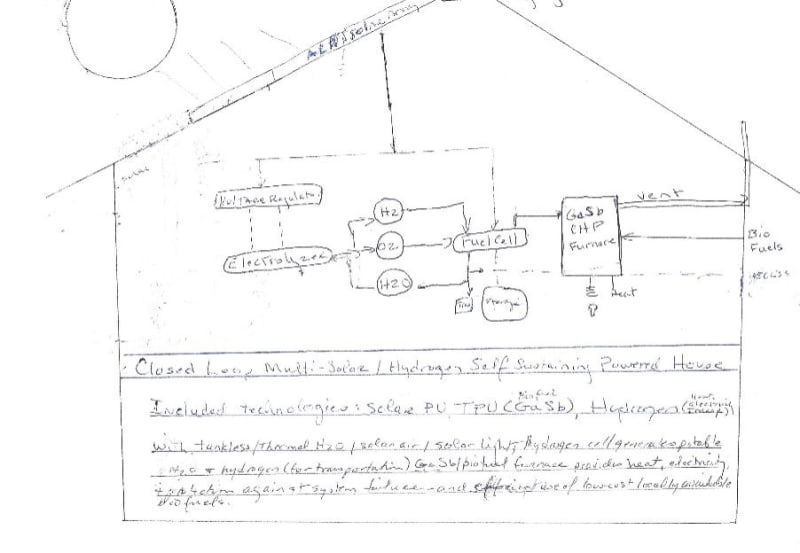 Voltage Regulator
H2
vent
GaSb
CHP
Furnace
O2
Fuel Cell
Bio
Fuels
Electrolyzer
H2O
Storage
Heat
Closed Loop Multi-Solar / Hydrogen Self Sustaining Powered House
Biofuel
Included technologies: Solar PV - TPV (GaSb), Hydrogen (Heat, Electricity,
With tankless/thermal H2O / solar air / solar light, Hydrogen cell generates potable
H2O + hydrogen (for transportation) GaSb/biofuel furnace provides heat, electricity,
against system failure and use of low cost locally available
Bio fuels.